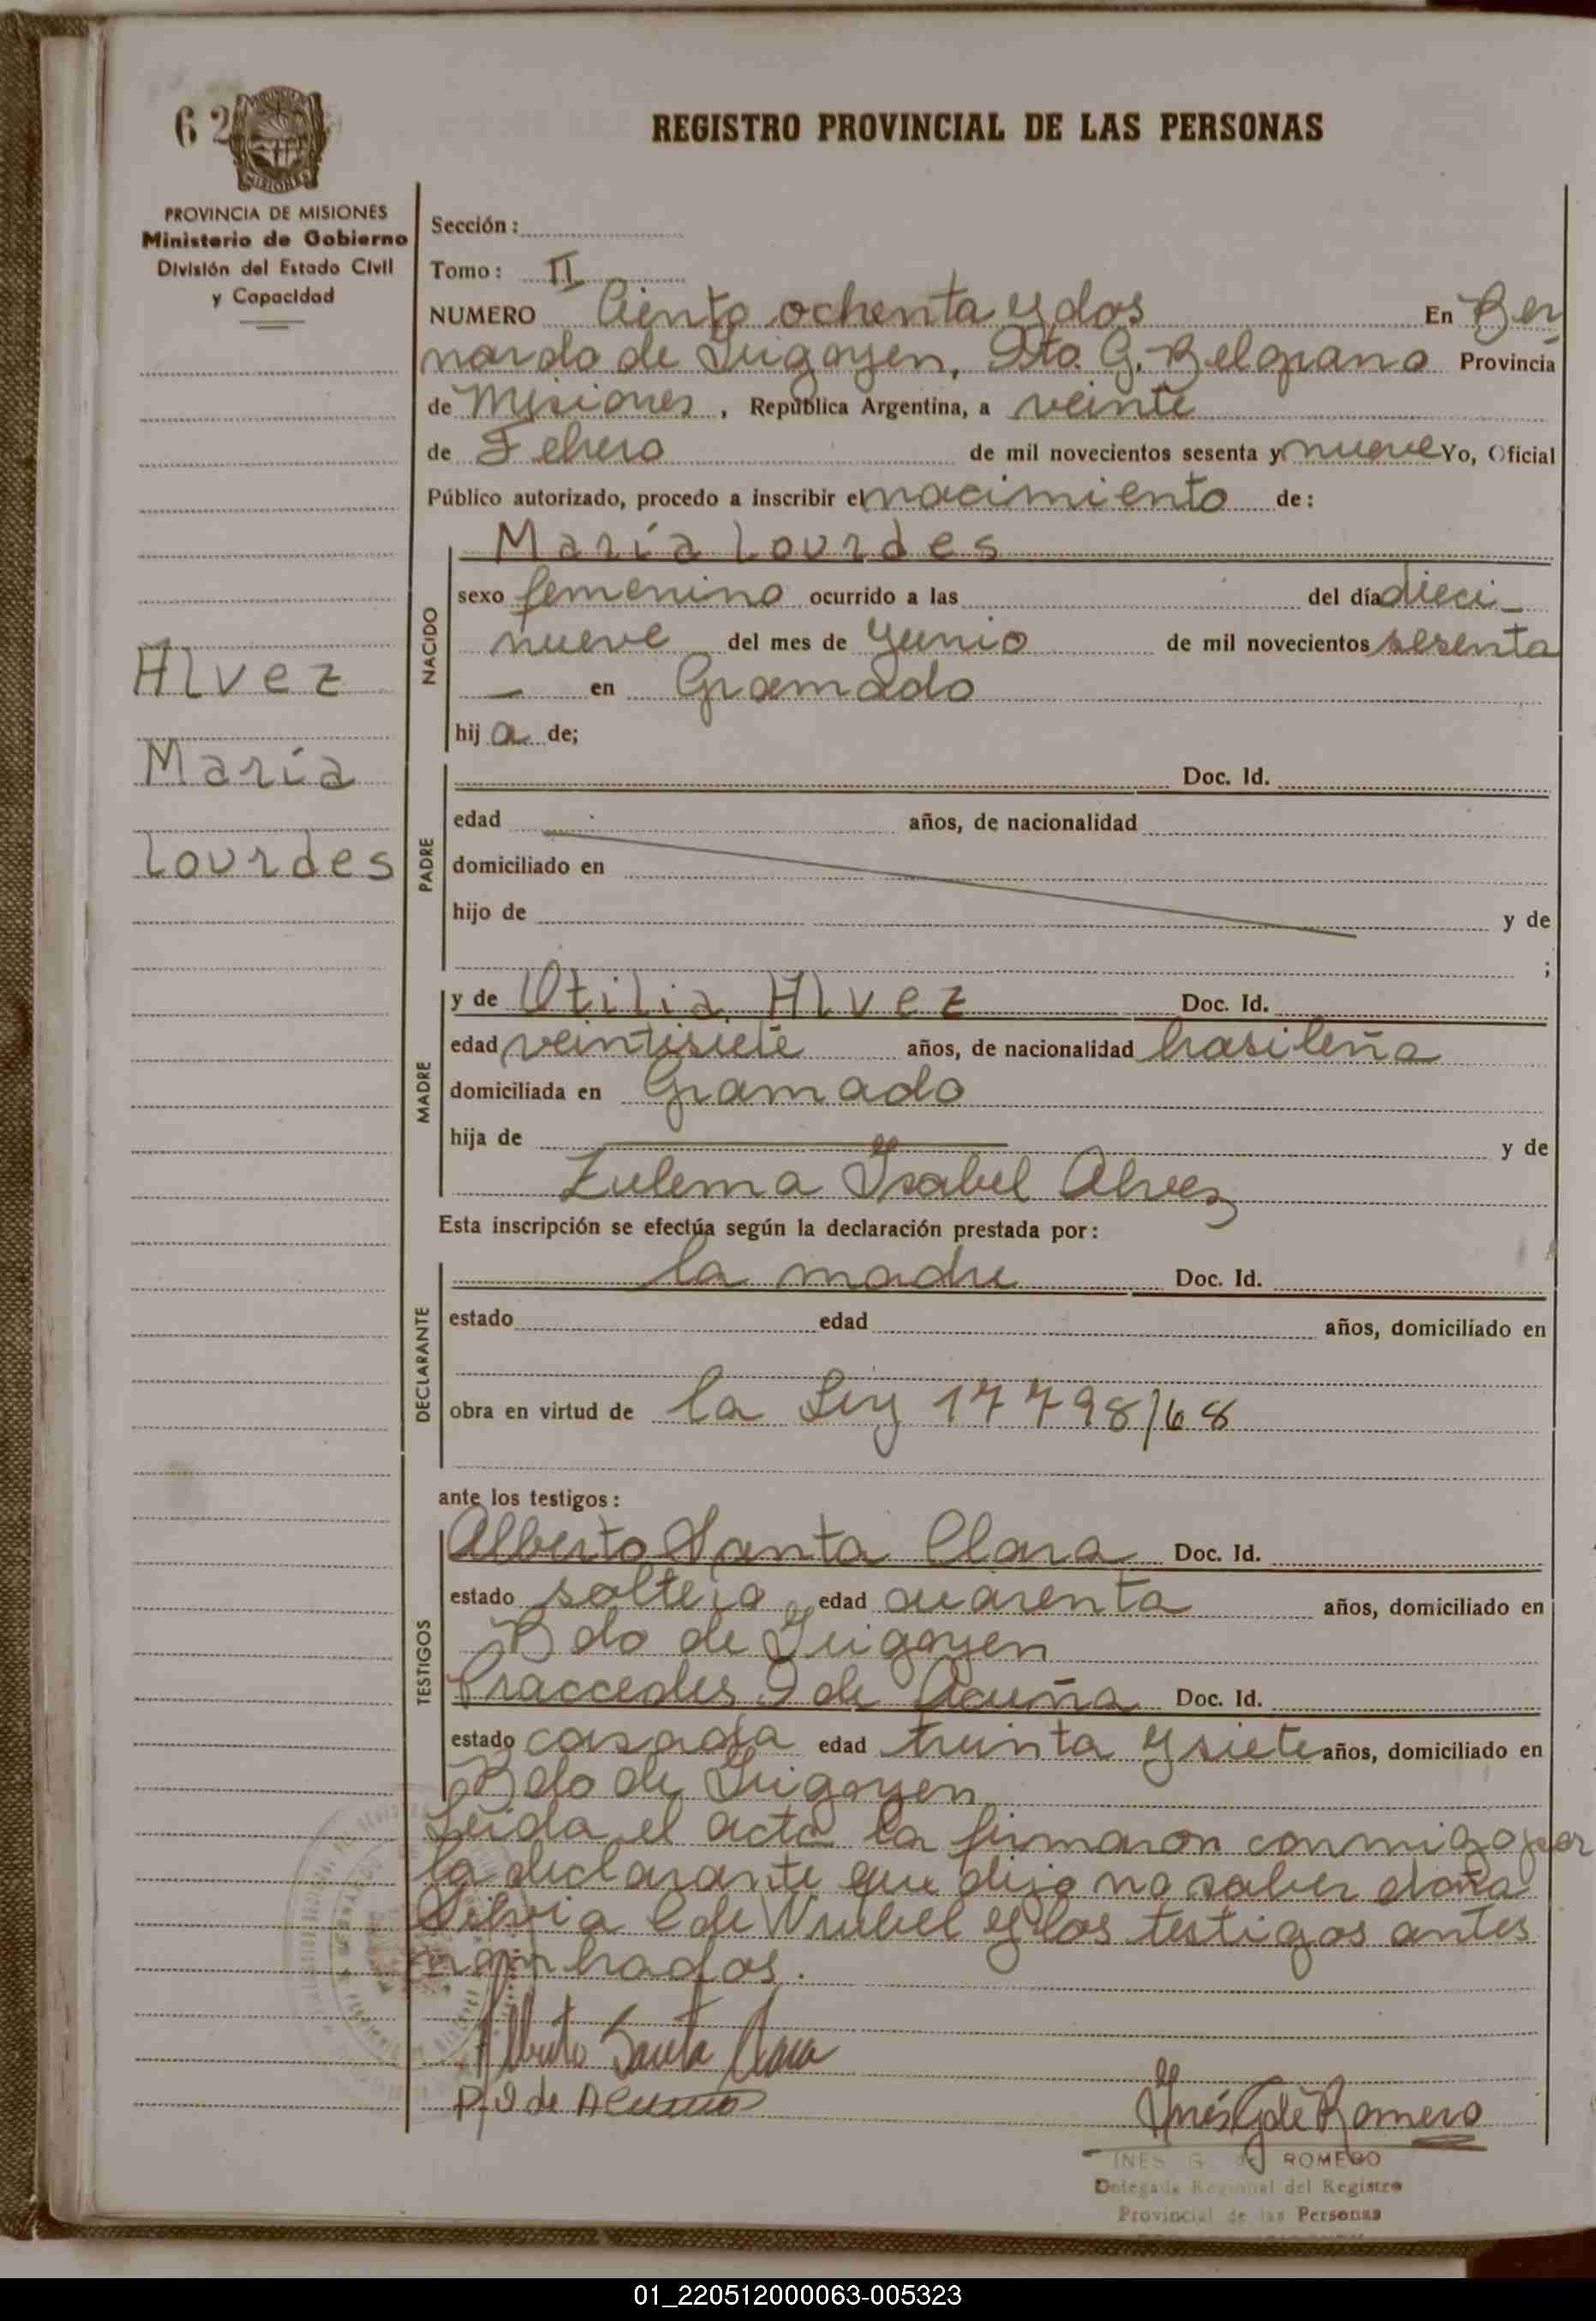 62
REGISTRO PROVINCIAL DE LAS PERSONAS
MISIONES
PROVINCIA DE MISIONES
Ministerio de Gobierno
División del Estado Civil
y Capacidad
Sección :
Tomo : II
NUMERO Ciento ochenta y dos En Ber
nardo de Irigoyen, Dto. G. Belgrano Provincia
de Misiones, República Argentina, a veinte
de Febrero de mil novecientos sesenta y nueve Yo, Oficial
Público autorizado, procedo a inscribir el nacimiento de :
María Lourdes
NACIDO
sexo femenino ocurrido a las del día dieci-
nueve del mes de Junio de mil novecientos sesenta
— en Gramado
hij a de;
Alvez
María
Lourdes
PADRE
Doc. Id.
edad años, de nacionalidad
domiciliado en
hijo de y de
;
MADRE
y de Otilia Alvez Doc. Id.
edad veintisiete años, de nacionalidad brasileña
domiciliada en Gramado
hija de y de
Zulema Isabel Alvez
Esta inscripción se efectúa según la declaración prestada por :
DECLARANTE
la madre Doc. Id.
estado edad años, domiciliado en
obra en virtud de la Ley 17498/68
ante los testigos :
TESTIGOS
Alberto Santa Clara Doc. Id.
estado soltero edad cuarenta años, domiciliado en
Bdo de Irigoyen
Praccedes I de Acuña Doc. Id.
estado casada edad treinta y siete años, domiciliado en
Bdo de Irigoyen
Leida el acta la firmaron conmigo por
la declarante que dijo no saber doña
Silvia C de Wrubel y los testigos antes
nombrados.
Alberto Santa Clara
P. I de Acuña
Inés G de Romero
INES G. de ROMERO
Delegada Regional del Registro
Provincial de las Personas
01_220512000063-005323